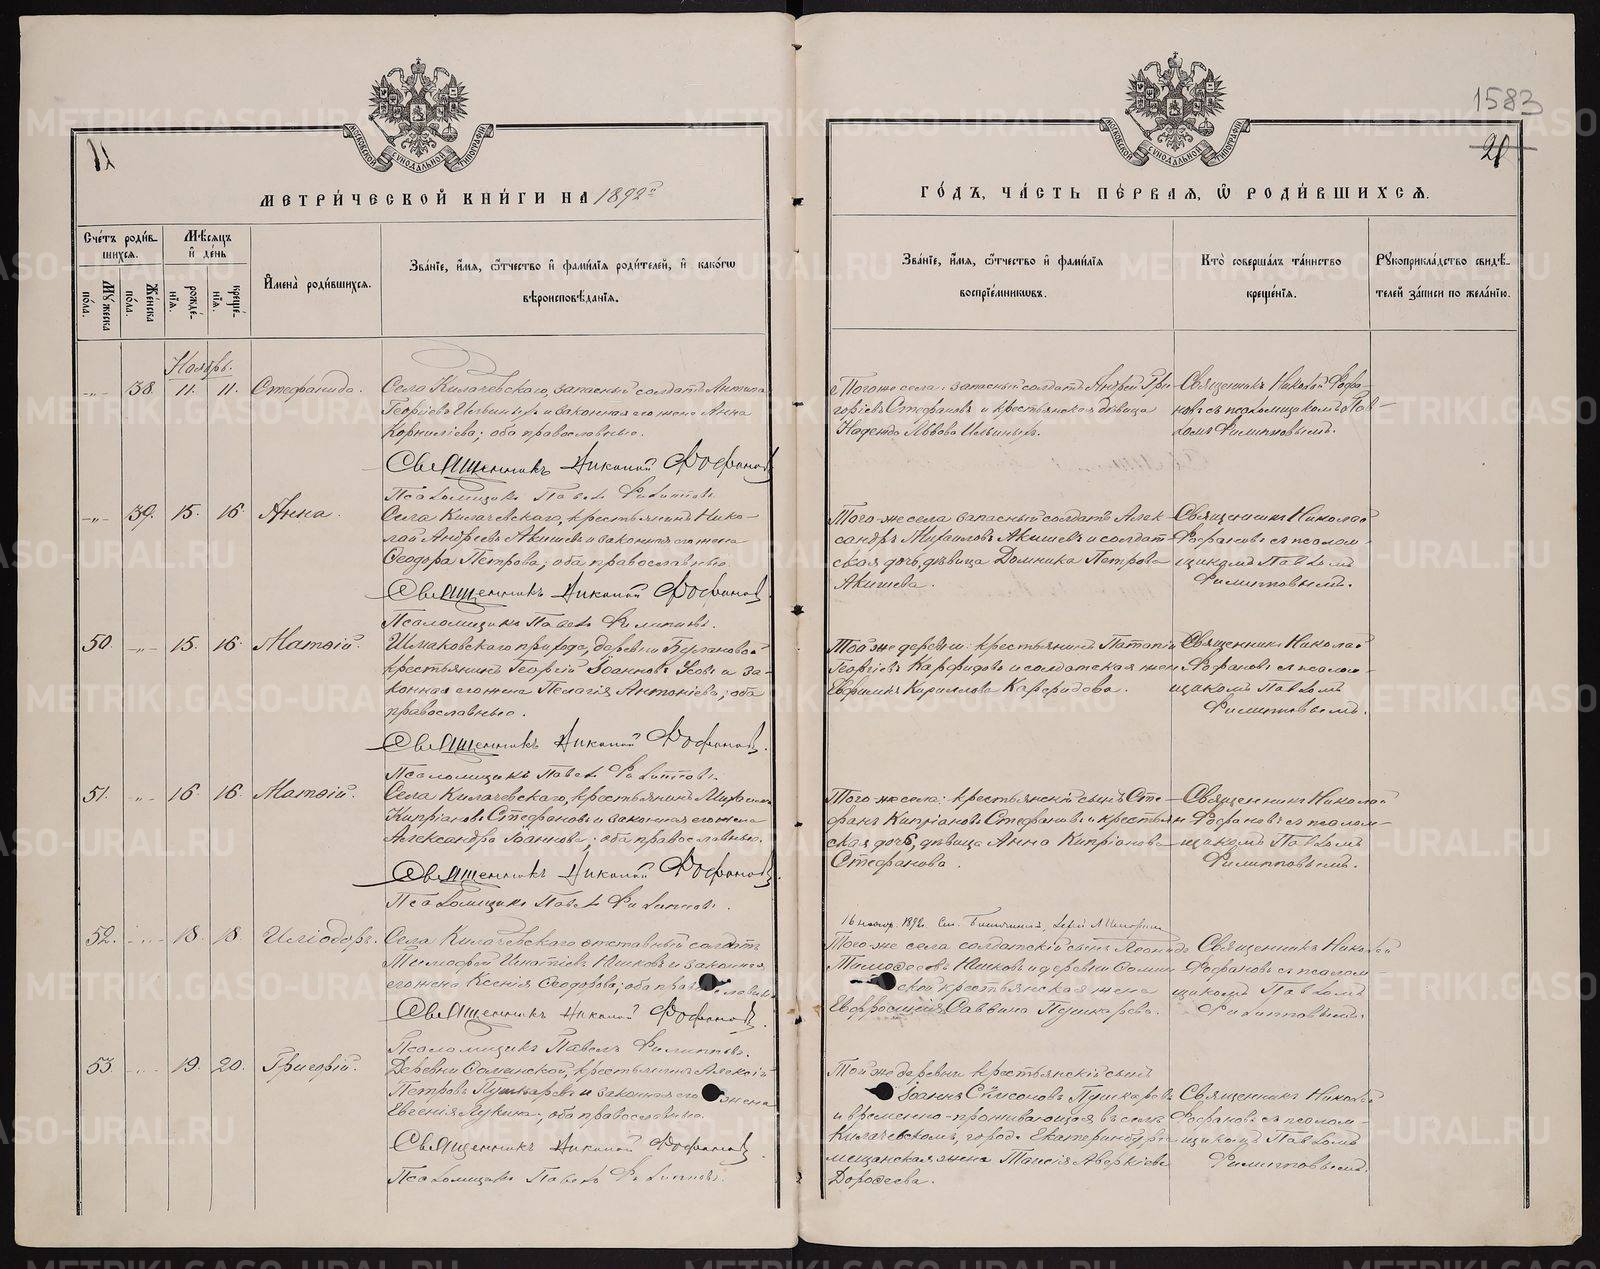 1583
11
21
МОСКОВСКОЙ СѴНОДАЛЬНОЙ ТИПОГРАФІИ
МОСКОВСКОЙ СѴНОДАЛЬНОЙ ТИПОГРАФІИ
МЕТРИ́ЧЕСКОЙ КНИ́ГИ НА 1892й
ГО́ДЪ, ЧА́СТЬ ПЕ́РВАЯ, Ѽ РОДИ́ВШИХСѦ.
Сче́тъ роди́в-
шихсѧ.
Мꙋ́жеска по́ла.
Же́нска по́ла.
Мѣ́сѧцъ
и҆ де́нь
рожде́-
нїѧ.
креще́-
нїѧ.
И҆мена̀ роди́вшихсѧ.
Зва́нїе, и҆́мѧ, ѻ҆́тчество и҆ фами́лїѧ роди́телей, и҆ како́гѡ
вѣроисповѣ́данїѧ.
Зва́нїе, и҆́мѧ, ѻ҆́тчество и҆ фами́лїѧ
воспрїе́мникѡвъ.
Кто̀ соверша́лъ та́инство
креще́нїѧ.
Рꙋкоприкла́дство свидѣ́-
телей за́писи по жела́нїю.
Ноябрь.
-"- 38 11. 11. Стефанида.
Села Килачевскаго, запасный солдатъ Антипа
Георгіевъ Ильиныхъ и законная его жена Анна
Корниліева; оба православные.
Священникъ Николай Фофановъ
Псаломщикъ Павелъ Филипповъ
Того же села: запасный солдатъ Андрей Гри
горіевъ Стефановъ и крестьянская дѣвица
Надежда Львова Ильиныхъ.
Священникъ Николай Фофа-
новъ съ псаломщикомъ Пав-
ломъ Филипповымъ.
-"- 39. 15. 16. Анна.
Села Килачевскаго, крестьянинъ Нико-
лай Андреевъ Акишевъ и законная его жена
Ѳеодора Петрова; оба православные.
Священникъ Николай Фофановъ.
Псаломщикъ Павелъ Филипповъ.
Того-же села запасный солдатъ Алек-
сандръ Михаиловъ Акишевъ и солдат-
ская дочь, дѣвица Домника Петрова
Акишева.
Священникъ Николай
Фофановъ съ псалом-
щикомъ Павломъ
Филипповымъ.
50. -"- 15. 16. Матѳій.
Шмаковскаго прихода, деревни
крестьянинъ Георгій Іоанновъ Усовъ и за-
конная его жена Пелагія Антоніева; оба
православные.
Священникъ Николай Фофановъ.
Псаломщикъ Павелъ Филипповъ.
Той же деревни: крестьянинъ Патапій
Георгіевъ Карфидовъ и солдатская жена
Кириллова Карфидова.
Священникъ Николай
Фофановъ съ псалом-
щикомъ Павломъ
Филипповымъ.
51. -"- 16. 16. Матѳій.
Села Килачевскаго, крестьянинъ Михаилъ
Кипріановъ Стефановъ и законная его жена
Александра Іоаннова; оба православные.
Священникъ Николай Фофановъ.
Псаломщикъ Павелъ Филипповъ.
Того-же села: крестьянскій сынъ Сте-
фанъ Кипріановъ Стефановъ и крестьян
ская дочь, дѣвица Анна Кипріанова
Стефанова.
Священникъ Николай
Фофановъ съ псалом-
щикомъ Павломъ
Филипповымъ.
52. -"- 18. 18. Иліодоръ.
Села Килачевскаго отставный солдатъ
Тимофей Игнатіевъ Юшковъ и законная
его жена Ксенія Ѳеодорова; оба православн.
Священникъ Николай Фофановъ.
Псаломщикъ Павелъ Филипповъ.
16 1892.
Того-же села солдатскій сынъ Леонидъ
Тимоѳеевъ Юшковъ и деревни
ской крестьянская жена
Евфросинія Саввина Пушкарева.
Священникъ Николай
Фофановъ съ псалом
щикомъ Павломъ
Филипповымъ.
53. -"- 19. 20. Григорій.
Деревни крестьянинъ Алексій
Петровъ Пушкаревъ и законная его жена
Евгенія Лукина; оба православные.
Священникъ Николай Фофановъ.
Псаломщикъ Павелъ Филипповъ.
Той же деревни крестьянскій сынъ
Іоаннъ Сѵмеоновъ Пушкаревъ
и временно-проживающая въ селѣ
Килачевскомъ, города Екатеринбурга
мещанская жена Таисія Аверкіева
Дороѳеева.
Священникъ Николай
Фофановъ съ псалом-
щикомъ Павломъ
Филипповымъ.
METRIKI.GASO-URAL.RU